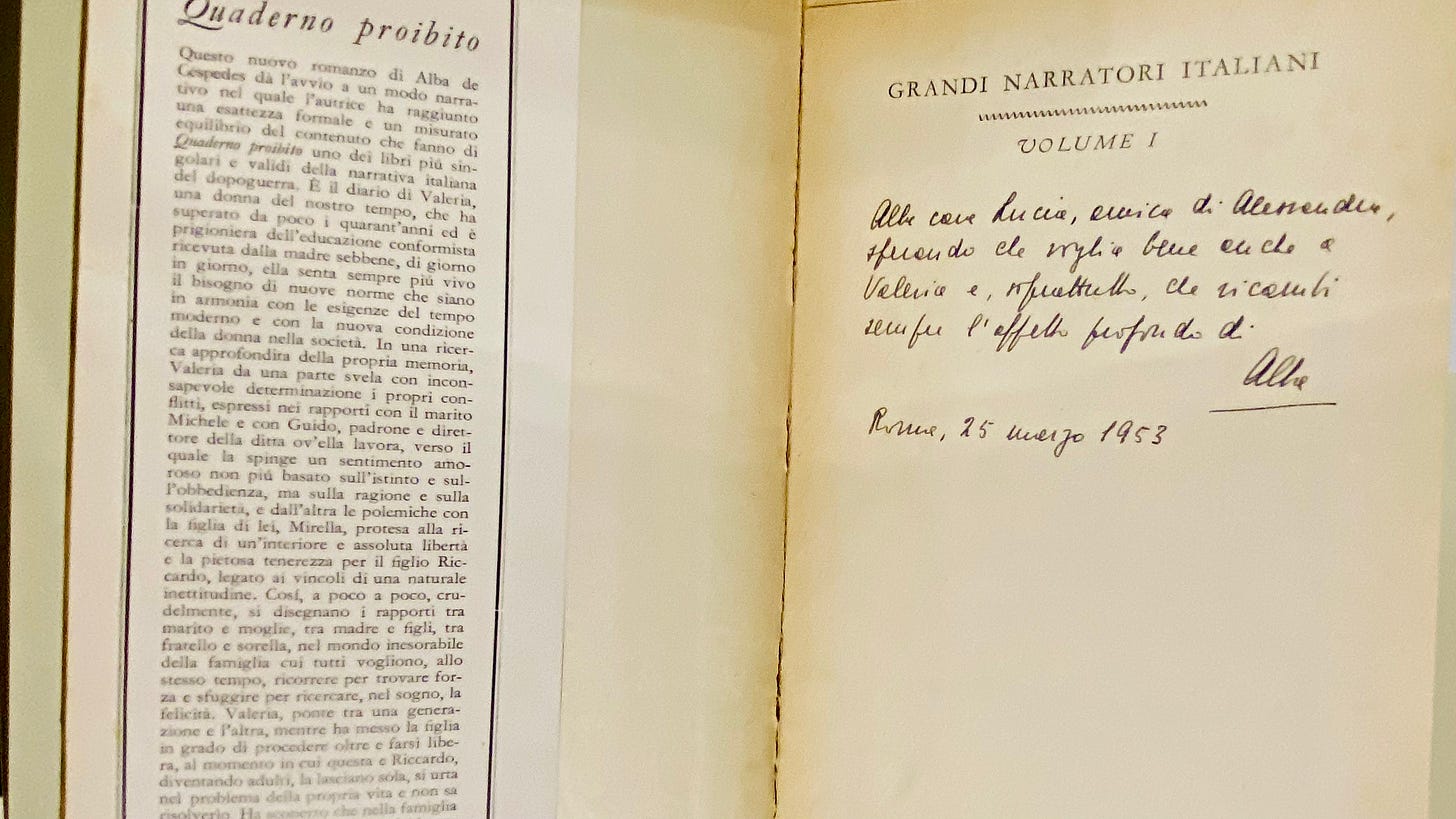 Quaderno proibito
Questo nuovo romanzo di Alba de
Cespedes dà l'avvio a un modo narra-
tivo nel quale l'autrice ha raggiunto
una esattezza formale e un misurato
equilibrio del contenuto che fanno di
Quaderno proibito uno dei libri più sin-
golari e validi della narrativa italiana
del dopoguerra. È il diario di Valeria,
una donna del nostro tempo, che ha
superato da poco i quarant'anni ed è
prigioniera dell'educazione conformista
ricevuta dalla madre sebbene, di giorno
in giorno, ella senta sempre più vivo
il bisogno di nuove norme che siano
in armonia con le esigenze del tempo
moderno e con la nuova condizione
della donna nella società. In una ricer-
ca approfondita della propria memoria,
Valeria da una parte svela con incon-
sapevole determinazione i propri con-
flitti, espressi nei rapporti con il marito
Michele e con Guido, padrone e diret-
tore della ditta ov'ella lavora, verso il
quale la spinge un sentimento amo-
roso non più basato sull'istinto e sul-
l'obbedienza, ma sulla ragione e sulla
solidarietà, e dall'altra le polemiche con
la figlia di lei, Mirella, protesa alla ri-
cerca di un'interiore e assoluta libertà
e la pietosa tenerezza per il figlio Ric-
cardo, legato ai vincoli di una naturale
inettitudine. Cosí, a poco a poco, cru-
delmente, si disegnano i rapporti tra
marito e moglie, tra madre e figli, tra
fratello e sorella, nel mondo inesorabile
della famiglia cui tutti vogliono, allo
stesso tempo, ricorrere per trovare for-
za e sfuggire per ricercare, nel sogno, la
felicità. Valeria, ponte tra una genera-
zione e l'altra, mentre ha messo la figlia
in grado di procedere oltre e farsi libe-
ra, al momento in cui questa e Riccardo,
diventando adulti, la lasciano sola, si urta
nel problema della propria vita e non sa
risolverlo. Ha scoperto che nella famiglia
GRANDI NARRATORI ITALIANI
VOLUME I
Alla cara Lucia, amica di Alessandra,
sperando che voglia bene anche a
Valeria e, soprattutto, che ricambi
sempre l'affetto profondo di
Alba
Roma, 25 marzo 1953